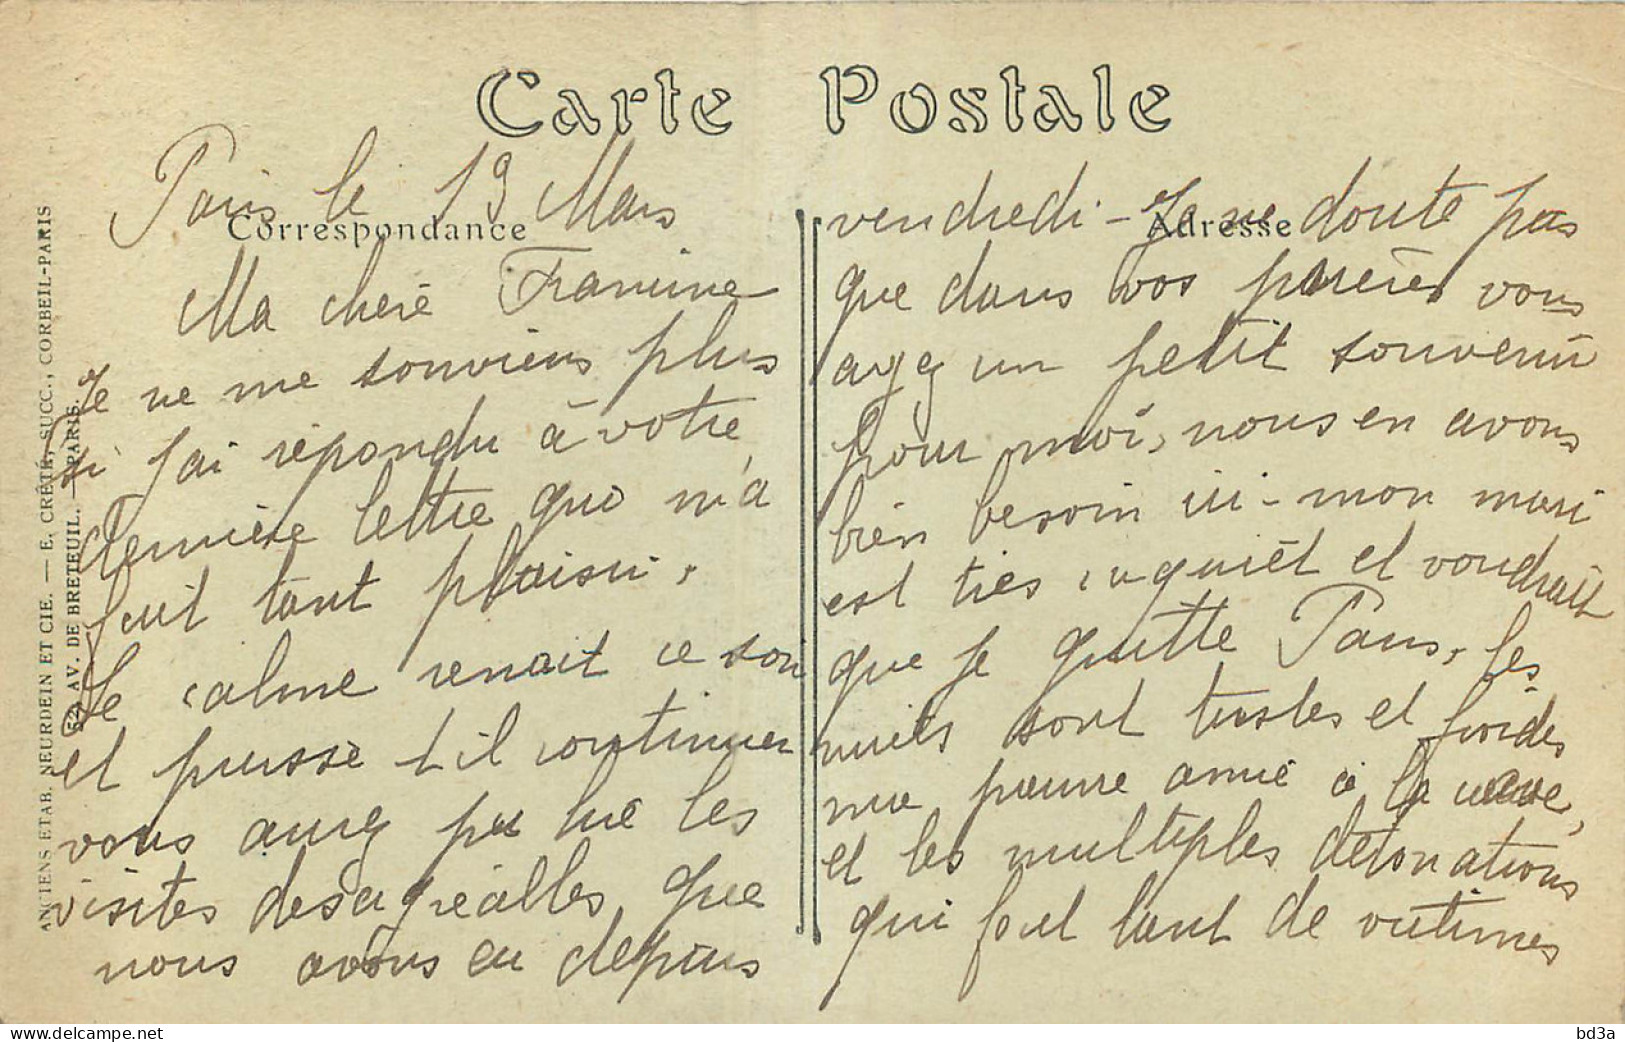 Carte Postale
Correspondance
Adresse
ANCIENS ETAB. NEURDEIN ET CIE. — E. CRÉTÉ, SUCC., CORBEIL-PARIS
52, AV. DE BRETEUIL. — PARIS.
Paris le 19 Mars
Ma chère Francine
Je ne me souviens plus
si j'ai répondu à votre
dernière lettre que m'a
fait tant plaisir.
Le calme renait ce soir
et puisse t il continuer
vous aurez pu lire les
visites desagréalles que
nous avons eu depuis
vendredi - Je ne doute pas
que dans vos prières vous
ayez un petit souvenir
pour moi, nous en avons
bien besoin ici - mon mari
est très inquiet et voudrait
que je quitte Paris, les
nuits sont tristes et froides
ma pauvre amie à la cave,
et les multiples détonations
qui font tant de victimes
delcampe.net
bd3a